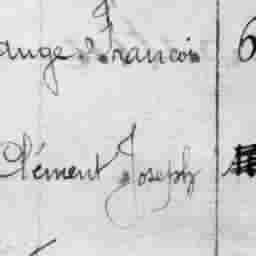 ange François 6
Clément Joseph